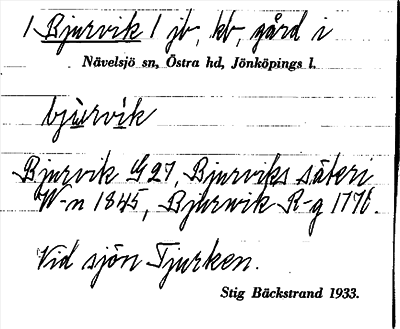 1 Bjurvik 1 jb, kb, gård i
Nävelsjö sn, Östra hd, Jönköpings l.
bjùrvik
Bjurvik G 27, Bjurviks säteri
W-n 1845, Bjurwik R-g 1770.
Vid sjön Tjurken.
Stig Bäckstrand 1933.